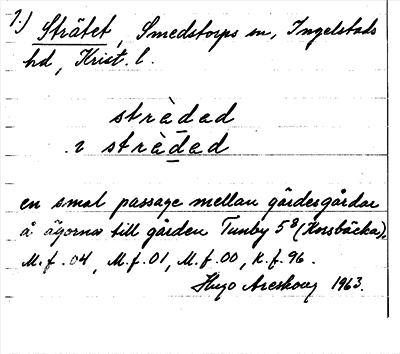 1.) Strätet, Smedstorps sn, Ingelstads
hd, Krist. l.
strèdəd
i strèdəd
en smal passage mellan gärdesgårdar
å ägorna till gården Tunby 5⁸ (Korsbäcka).
M.f.04, M.f.01, M.f.00, K.f.96.
Hugo Areskoug 1963.